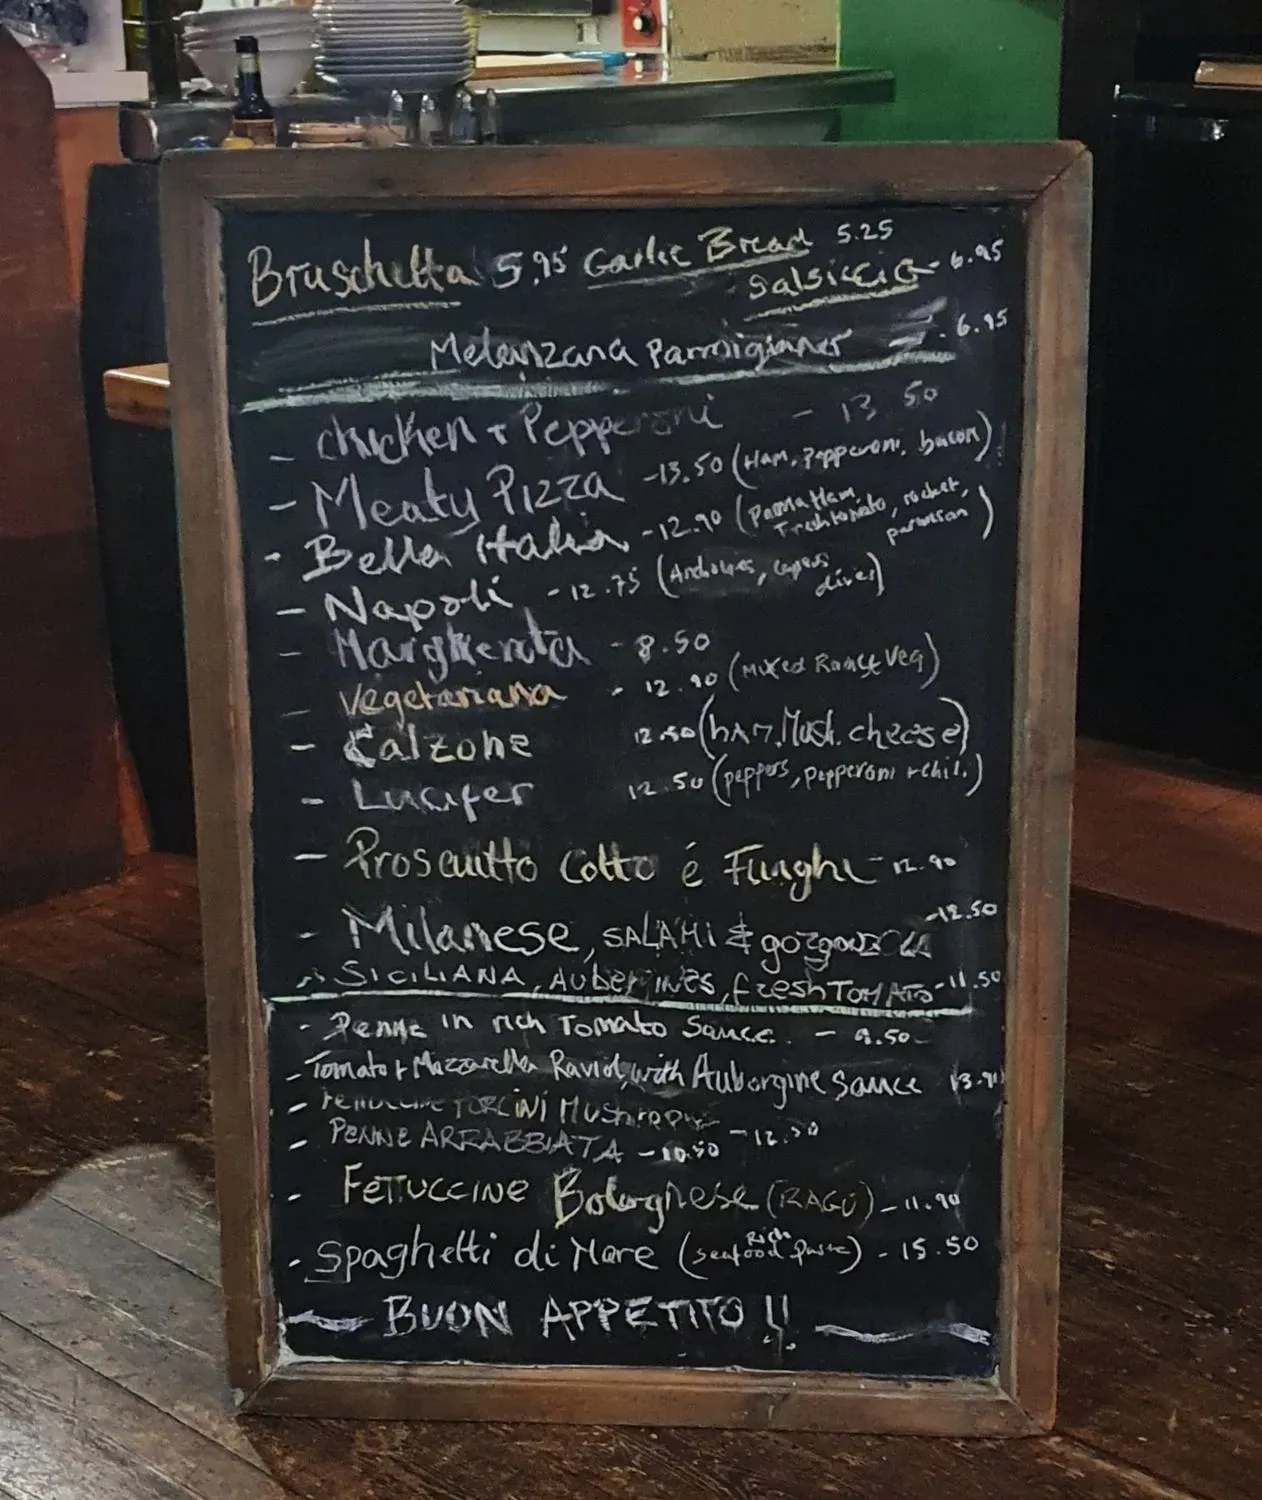 Bruschetta 5.95 Garlic Bread 5.25
Salsiccia - 6.95
Melanzana Parmigianer - 6.95
- Chicken + Pepperoni - 13 50
- Meaty Pizza - 13.50 (Ham, Pepperoni, bacon)
- Bella Italia - 12.90 (Parma Ham, Fresh tomato, rocket, parmesan)
- Napoli - 12.75 (Anchovies, capers olives)
- Margherita - 8.50
- Vegetariana - 12.90 (Mixed Roast Veg)
- Calzone 12.50 (HAM, Mush. cheese)
- Lucifer 12.50 (peppers, pepperoni + chil.)
- Proscuitto Cotto é Funghi - 12.90
- Milanese, SALAMi & gorgonzola - 12.50
- SICILIANA, AUBERGINES, fresh TOMATO - 11.50
- Penne in rich Tomato Sauce. - 9.50
- Tomato + Mozzarella Ravioli with Aubergine Sauce 13.90
- Fettuccine PORCiNi MUSHroom - 12.50
- PENNE ARRABBIATA - 10.50
- FETTUCCINE Bolognese (RAGU) - 11.90
- Spaghetti di Mare (Rich seafood Paste) - 15.50
BUON APPETITO !!